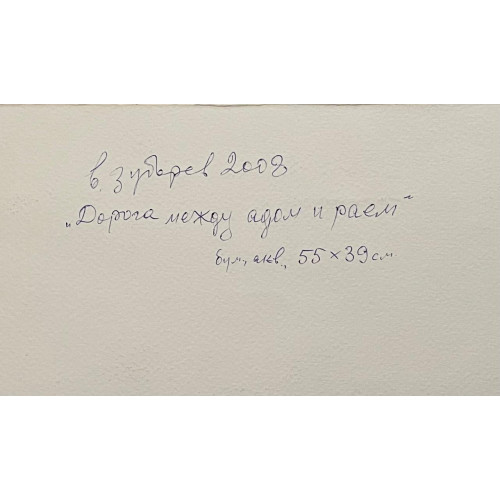 В. Зубарев 2008
„Дорога между адом и раем“
бум, акв, 55×39см